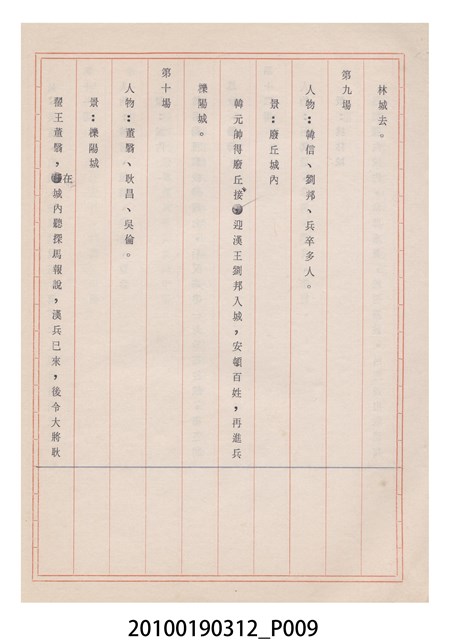 林城去。
第九場
人物：韓信、劉邦、兵卒多人。
景：廢丘城內
韓元帥得廢丘接迎漢王劉邦入城，安頓百姓，再進兵
櫟陽城。
第十場
人物：董翳、耿昌、吳倫。
景：櫟陽城
翟王董翳，在城內聽探馬報說，漢兵已來，後令大將耿
20100190312_P009